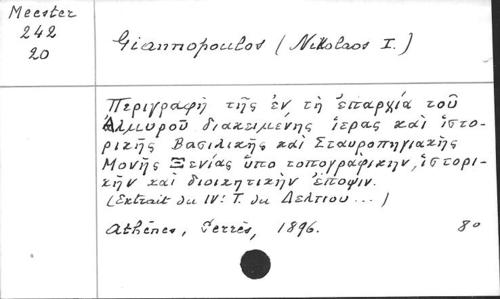 Meester
242
20
Giannopoulos (Nikolaos I.)
Περιγραφὴ τῆς ἐν τῇ ἐπαρχίᾳ τοῦ
Ἁλμυροῦ διακειμένης ἱερᾶς καὶ ἱστο-
ρικῆς Βασιλικῆς καὶ Σταυροπηγιακῆς
Μονῆς Ξενίας ὑπο τοπογραφικην, ἱστορι-
κὴν καὶ διοικητικὴν ἐποψιν.
(Extrait du IV: T. du Δελτιου...)
Athènes, Perrès, 1896. 8º